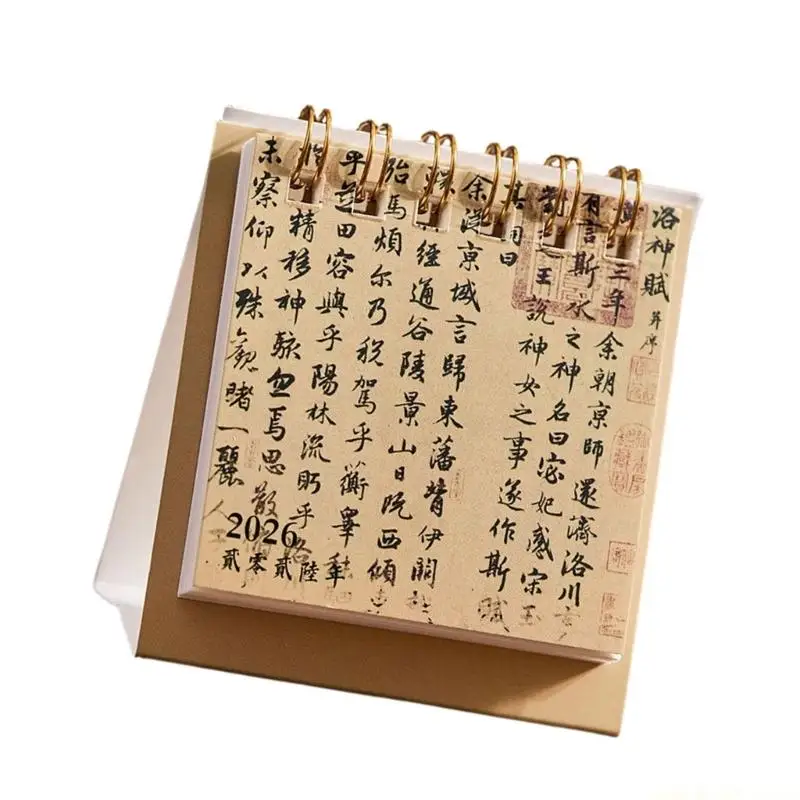 洛神賦 并序
三年余朝京師還濟洛川古
有言斯水之神名曰宓妃感宋玉
對楚王說神女之事遂作斯賦
其詞曰
余從京域言歸東藩背伊闕
經通谷陵景山日既西傾
殆馬煩爾乃稅駕乎蘅皋
乎芝田容與乎陽林流眄乎洛
精移神駭忽焉思散
未察仰以殊觀睹一麗人
2026
貳零貳陸年